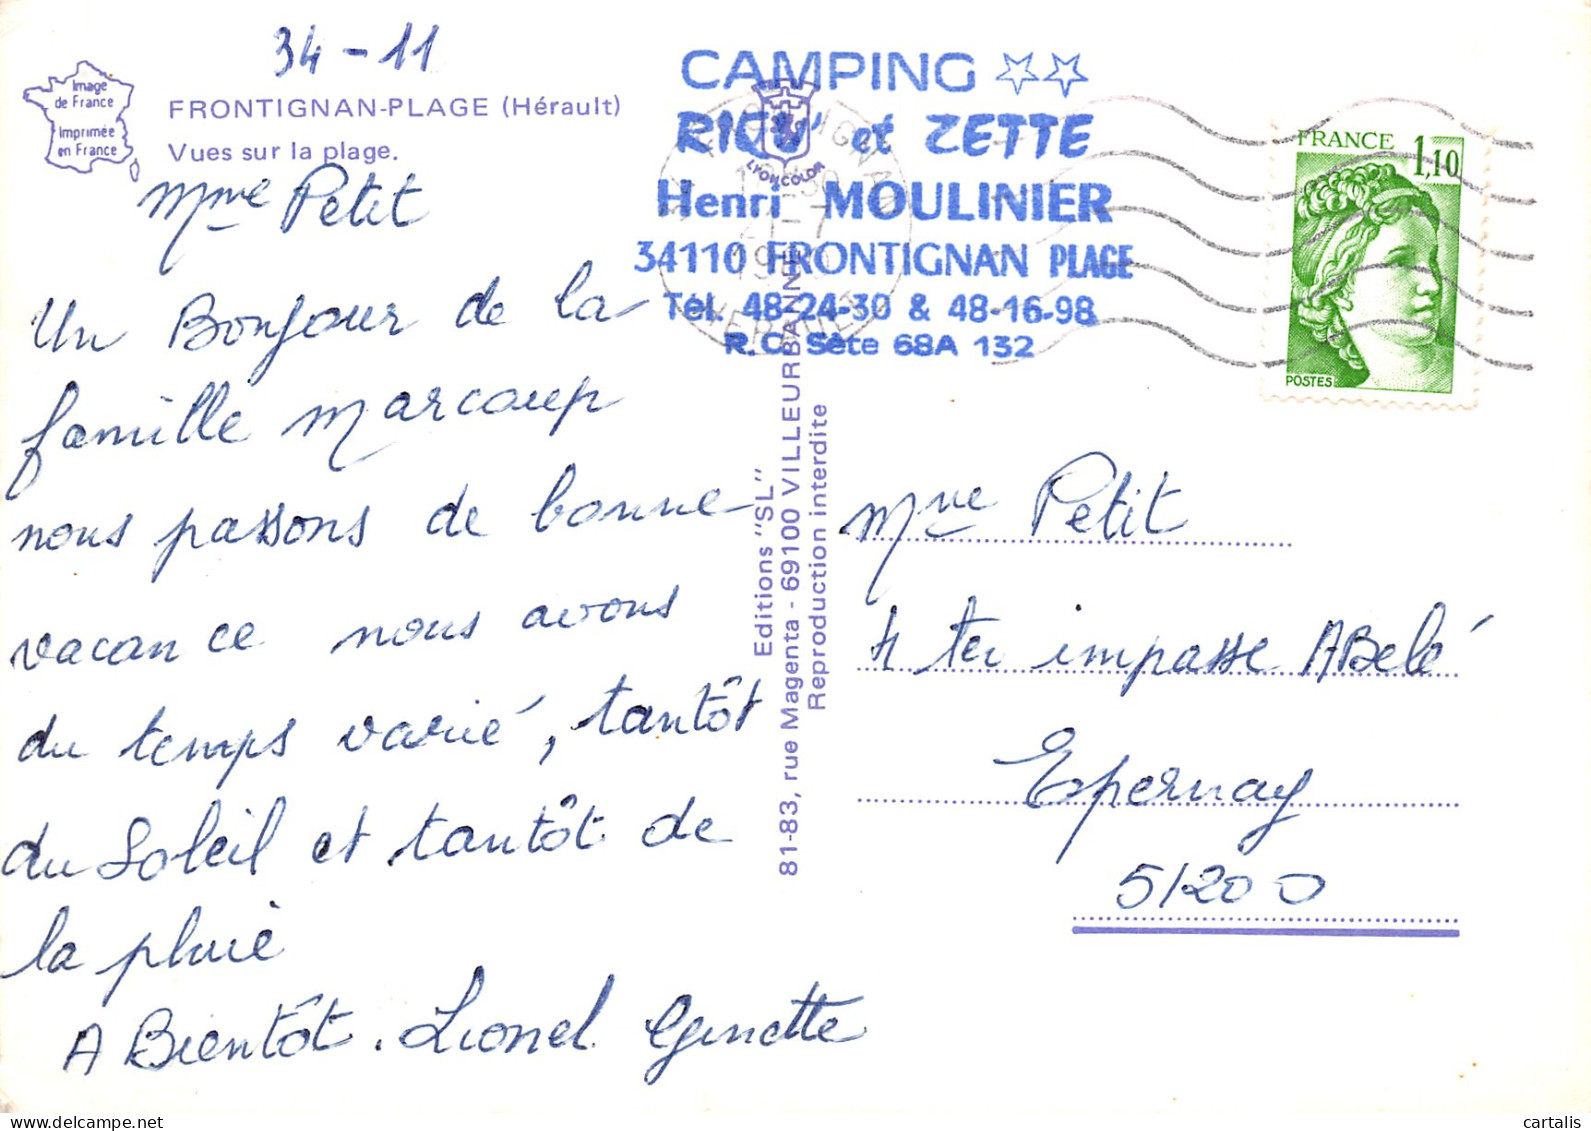 34-11
Image
de France
Imprimée
en France
FRONTIGNAN-PLAGE (Hérault)
Vues sur la plage.
Mme Petit
Un Bonjour de la
famille Marcoup
nous passons de bonne
vacance nous avons
du temps varié, tantôt
du Soleil et tantôt de
la pluie
A Bientôt. Lionel Ginette
CAMPING ☆☆
RIQU' et ZETTE
Henri MOULINIER
34110 FRONTIGNAN PLAGE
Tél. 48-24-30 & 48-16-98
R.C. Sète 68A 132
LYONCOLOR
HERAULT
Editions "SL"
81-83, rue Magenta - 69100 VILLEURBANNE
Reproduction interdite
FRANCE
1,10
POSTES
Mme Petit
4 ter impasse ABelé
Epernay
51200
delcampe.net
cartalis